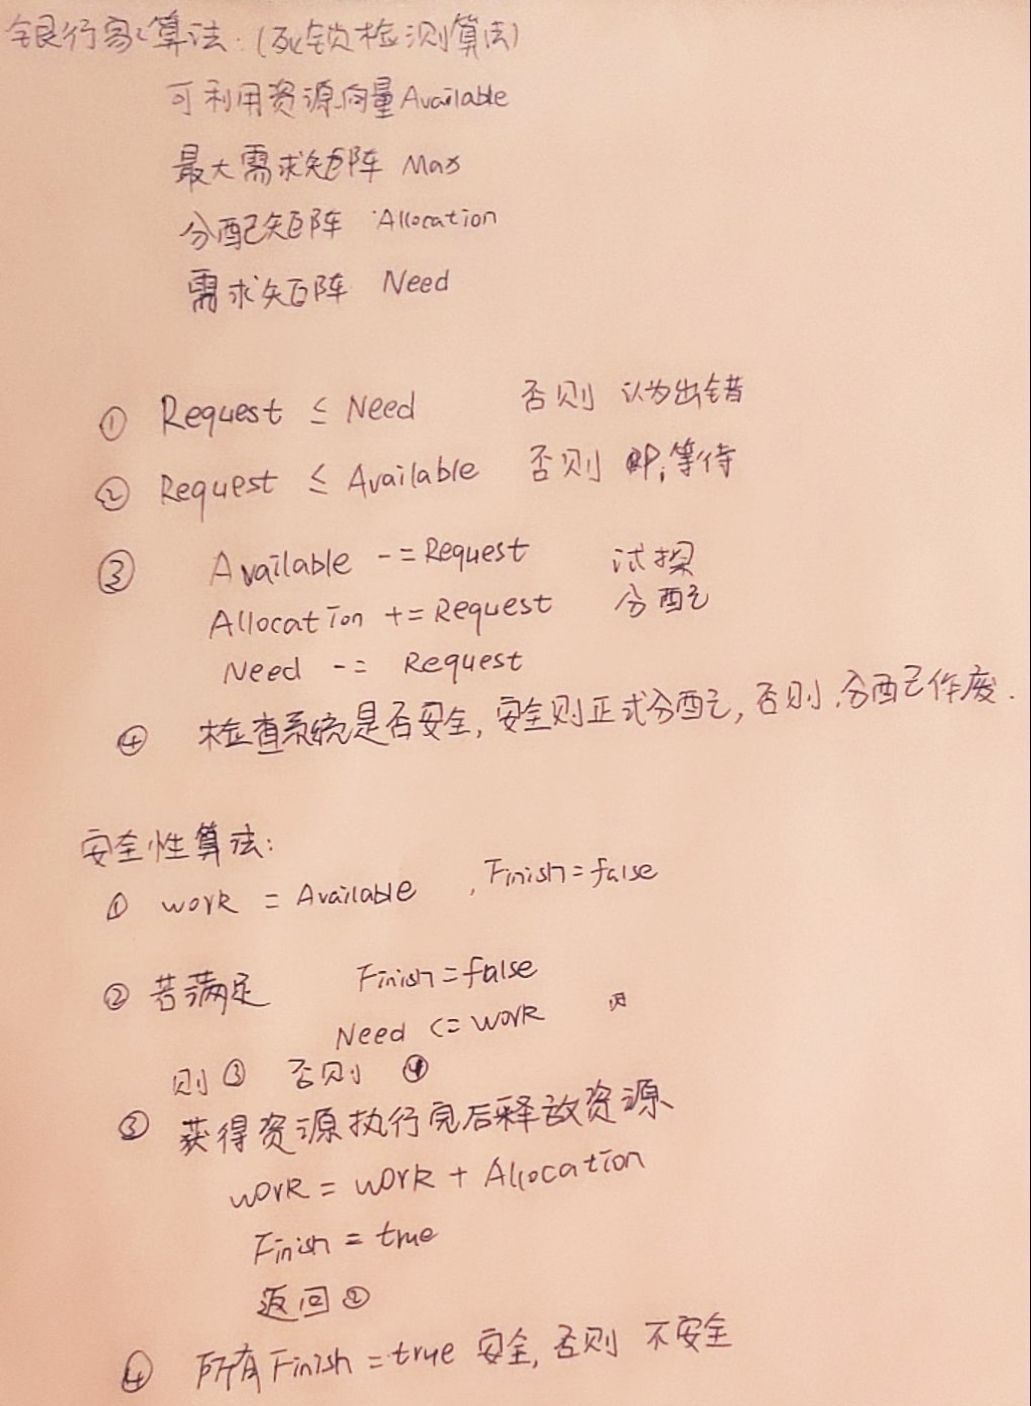 银行家算法:(死锁检测算法)
可利用资源向量 Available
最大需求矩阵 Max
分配矩阵 Allocation
需求矩阵 Need
① Request ≤ Need 否则 认为出错
② Request ≤ Available 否则 Pi等待
③ Available -= Request 试探
Allocation += Request 分配
Need -= Request
④ 检查系统是否安全, 安全则正式分配, 否则, 分配作废.
安全性算法:
① work = Available , Finish = false
② 若满足 Finish = false
Need <= work
则③ 否则 ④
③ 获得资源执行完后释放资源
work = work + Allocation
Finish = true
返回②
④ 所有Finish = true 安全, 否则 不安全